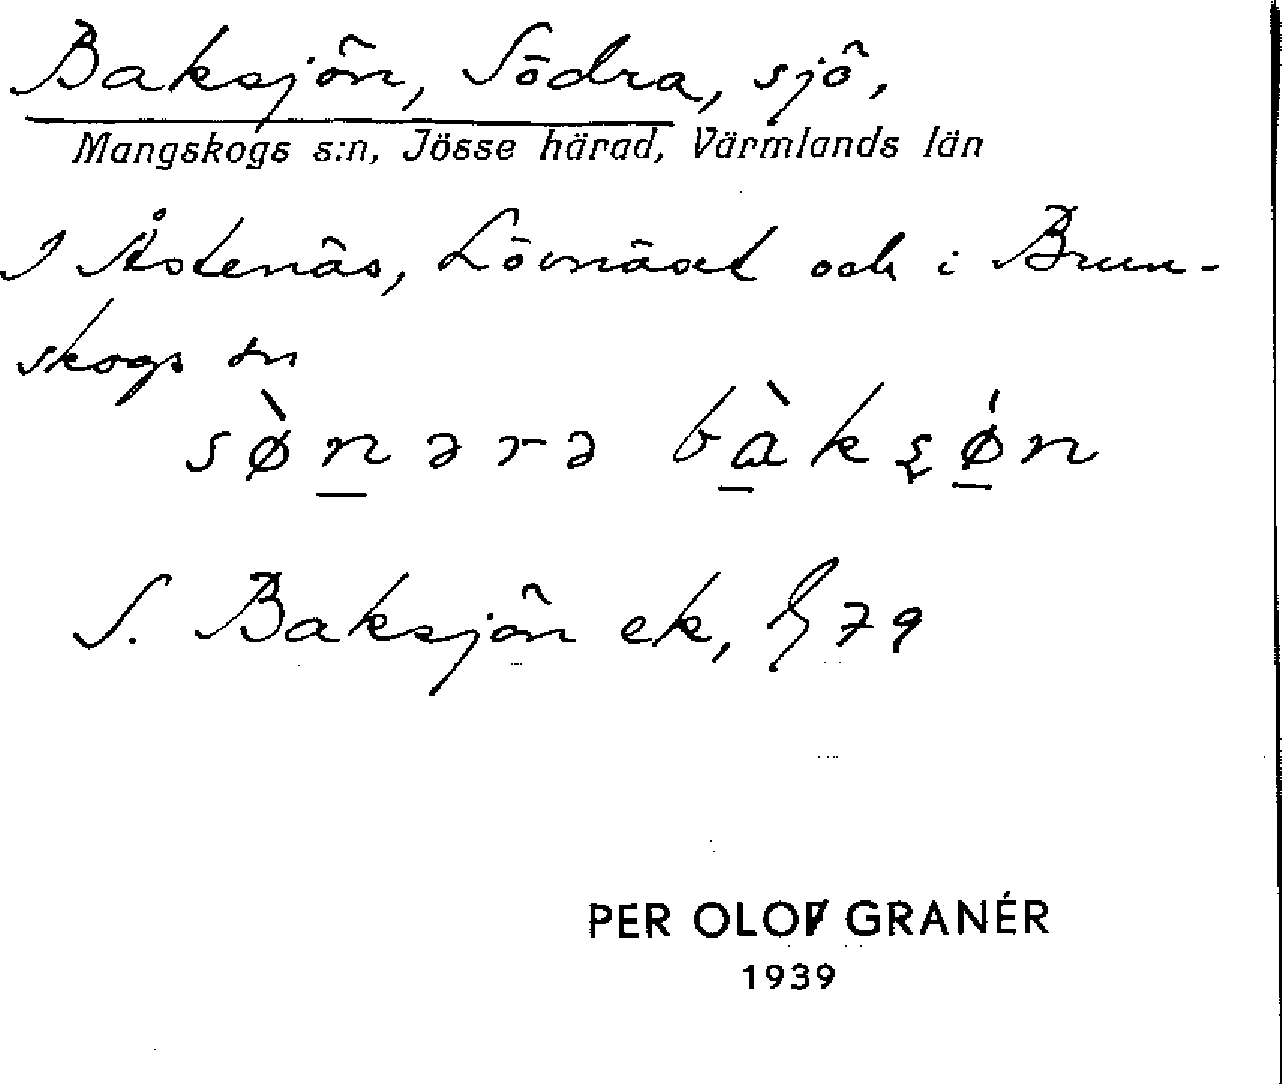 Baksjön, Södra, sjö,
Mangskogs s:n, Jösse härad, Värmlands län
I Åstenäs, Lövnäset och i Brun-
skogs sn
sø̀nərə bàkʂǿn
S. Baksjön ek, G 79
PER OLOF GRANÉR
1939